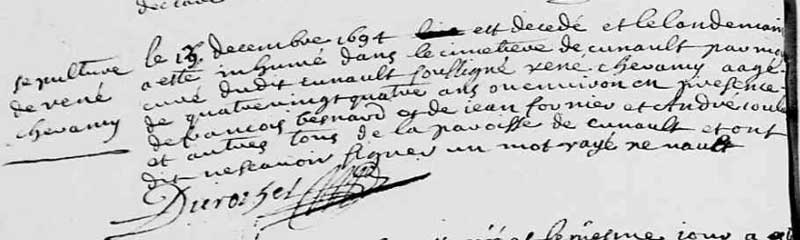 sepulture
de rené
chevamy
le 13e decembre 1694 est decedé et le landemain
a esté inhumé dans le cimetiere de cunault par moy
curé dudit cunault soussigné rené chevamy aagé
de quatre vingt quatre ans ou environ en presence
de francois besnard et de jean fornier et André
et autres tous de la paroisse de cunault et ont
dit ne scavoir signer un mot rayé ne vault